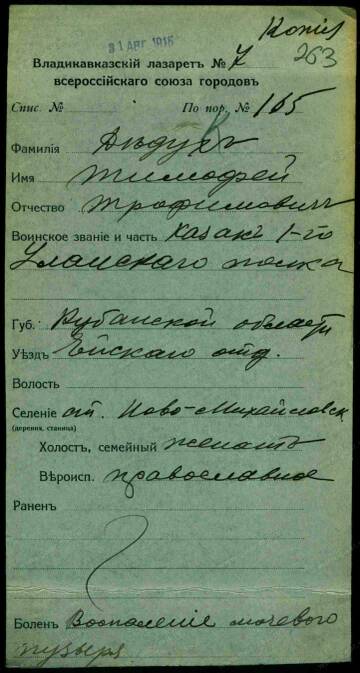 Копия
31 АВГ 1916
263
Владикавказскій лазаретъ № 7
всероссійскаго союза городовъ
Спис. № По пор. № 165
Фамилія Дѣдухъ
Имя Тимофей
Отчество Трофимовичъ
Воинское званіе и часть Казакъ 1-го
полка
Губ. Кубанской области
Уѣздъ Ейскаго отд.
Волость
Селеніе ст. Ново-Михайловск.
(деревня, станица)
Холостъ, семейный женатъ
Вѣроисп. православное
Раненъ
Боленъ Воспаленіе мочевого
пузыря